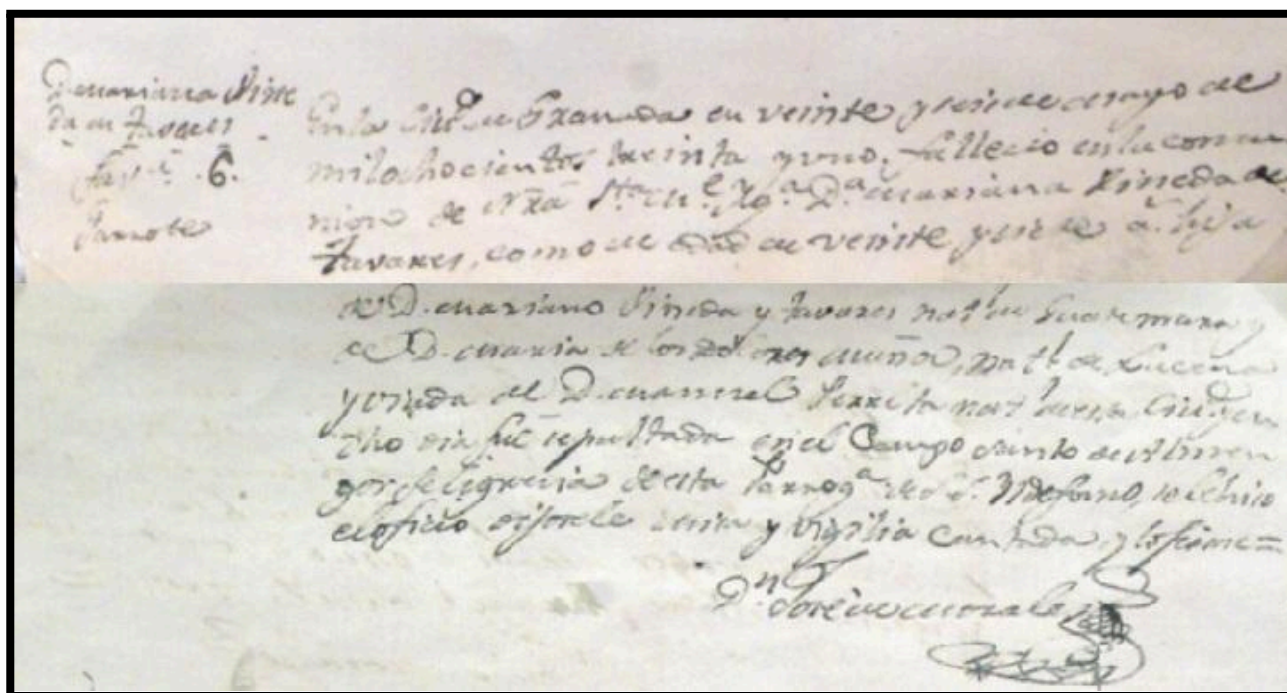 D. Mariana Pine
da de Tavares
6.
Garrote
En la Ciud. de Granada en veinte y seis de mayo de
mil ochocientos treinta y uno, fallecio en la comu
nion de Ntra. Sta. Me. Yg.a D.a Mariana Pineda de
Tavares, como de edad de veinte y siete a.s hija
de D. Mariano Pineda y Tavares nat.l de Guatemala y
de D. Maria de los Dolores Muñoz, nat.l de Lucena
y viuda de D. Manuel Perrita nat.l de esta Ciud. en
dho dia fue sepultada en el Campo santo de Almen
gor feligrecia de esta Parrog.a de S. Yldefonso, se le hizo
el oficio misa y vigilia cantada, y lo firmé =
D.n Jose de Morales